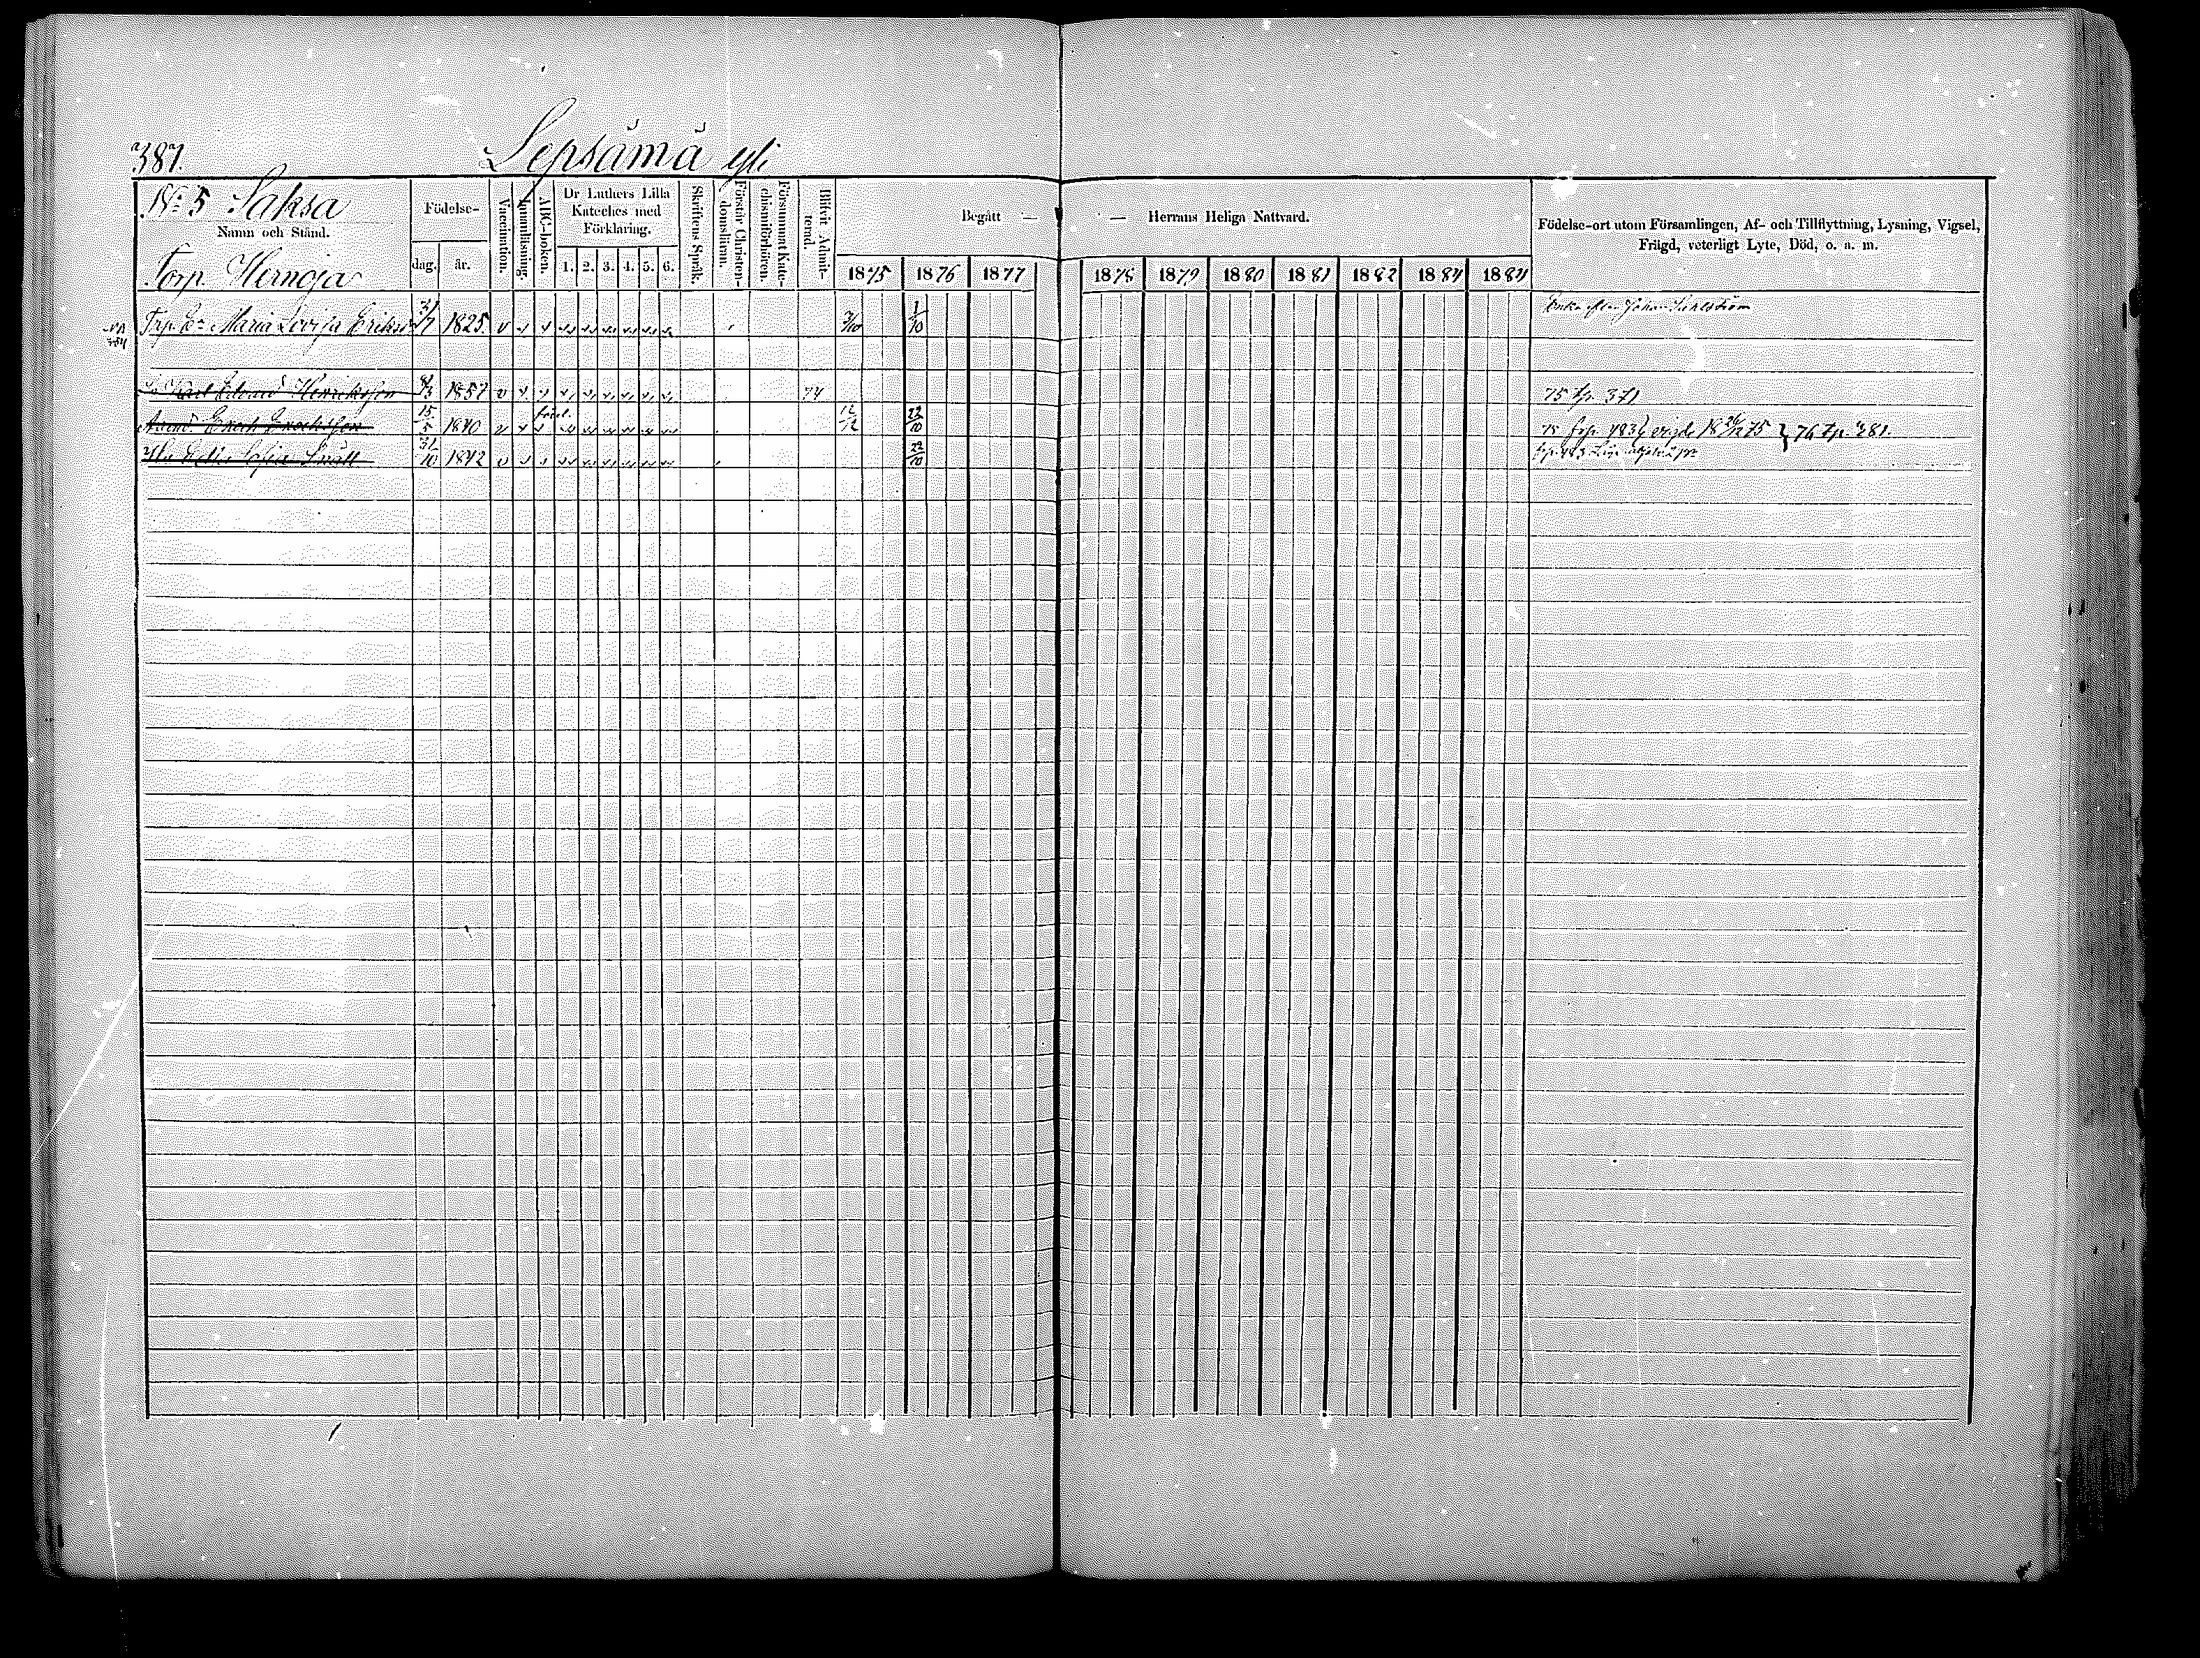 387.
Lepsämä yli
No 5 Saksa
Namn och Stånd.
Torp Hernoja
Födelse-
dag. år.
Vaccination.
Innanläsning.
ABC-boken.
Dr Luthers Lilla
Kateches med
Förklaring.
1. 2. 3. 4. 5. 6.
Skriftens Språk.
Förstår Christen-
domsläran.
Försummat Kate-
chismiförhören.
Blifvit Admit-
terad.
Begått — — Herrans Heliga Nattvard.
1875 1876 1877 1878 1879 1880 1881 1882 1884 1884
Födelse-ort utom Församlingen, Af- och Tillflyttning, Lysning, Vigsel,
Frägd, veterligt Lyte, Död, o. a. m.
Maria Lovisa 31/7 1825 1/10 Enka efter Johan
Karl Edvard Henriksson 1857 74 75 fp. 371
Enoch Enochsson 15/5 1840 12/12 22/10 75 483 vigde 1875 76 fp. 281.
Sofia 31/10 1842 22/10